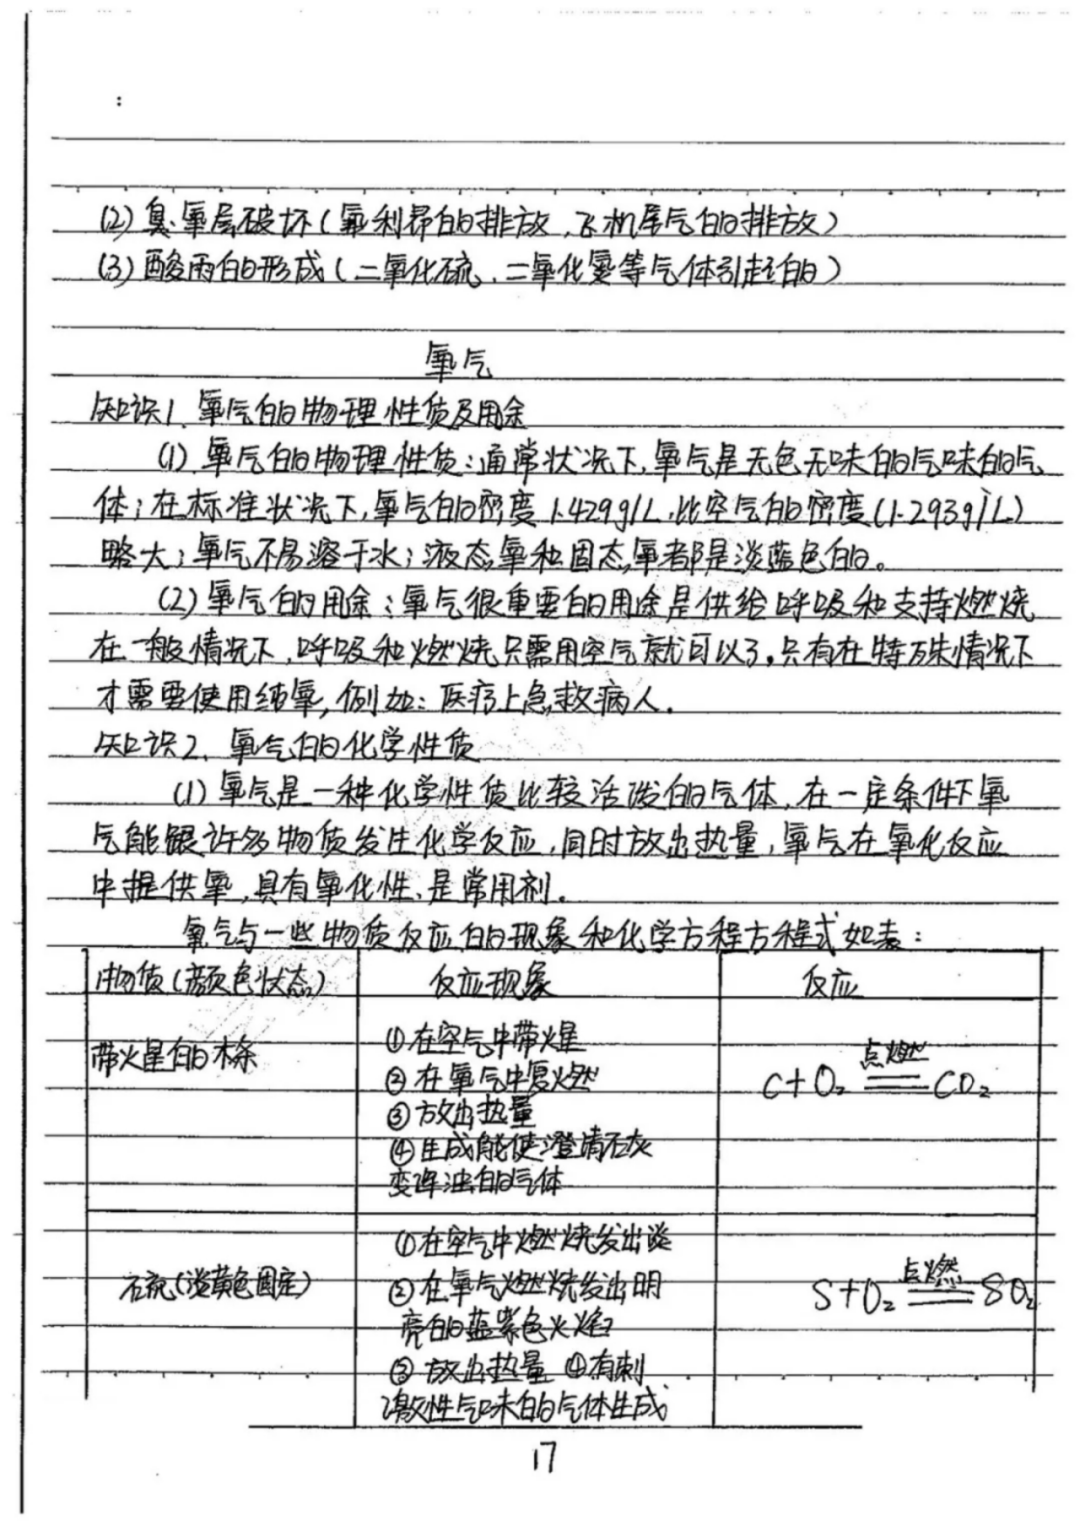 (2) 臭氧层破坏(氟利昂的排放、飞机尾气的排放)
(3) 酸雨的形成(二氧化硫、二氧化氮等气体引起的)
氧气
知识1. 氧气的物理性质及用途
(1) 氧气的物理性质:通常状况下,氧气是无色无味的气味的气
体;在标准状况下,氧气的密度1.429g/L,比空气的密度(1.293g/L)
略大;氧气不易溶于水;液态氧和固态氧都是淡蓝色的。
(2) 氧气的用途:氧气很重要的用途是供给呼吸和支持燃烧
在一般情况下,呼吸和燃烧只需用空气就可以了。只有在特殊情况下
才需要使用纯氧,例如:医疗上急救病人。
知识2. 氧气的化学性质
(1) 氧气是一种化学性质比较活泼的气体,在一定条件下氧
气能跟许多物质发生化学反应,同时放出热量,氧气在氧化反应
中提供氧,具有氧化性、是常用剂。
氧气与一些物质反应的现象和化学方程方程式如表:
物质(颜色状态) 反应现象 反应
带火星的木条
①在空气中带火星
②在氧气中复燃
③放出热量
④生成能使澄清石灰
变浑浊的气体
C+O₂ 点燃 CO₂
石硫(淡黄色固定)
①在空气中燃烧发出淡
②在氧气燃烧发出明
亮的蓝紫色火焰
③放出热量 ④有刺
激性气味的气体生成
S+O₂ 点燃 SO₂
17